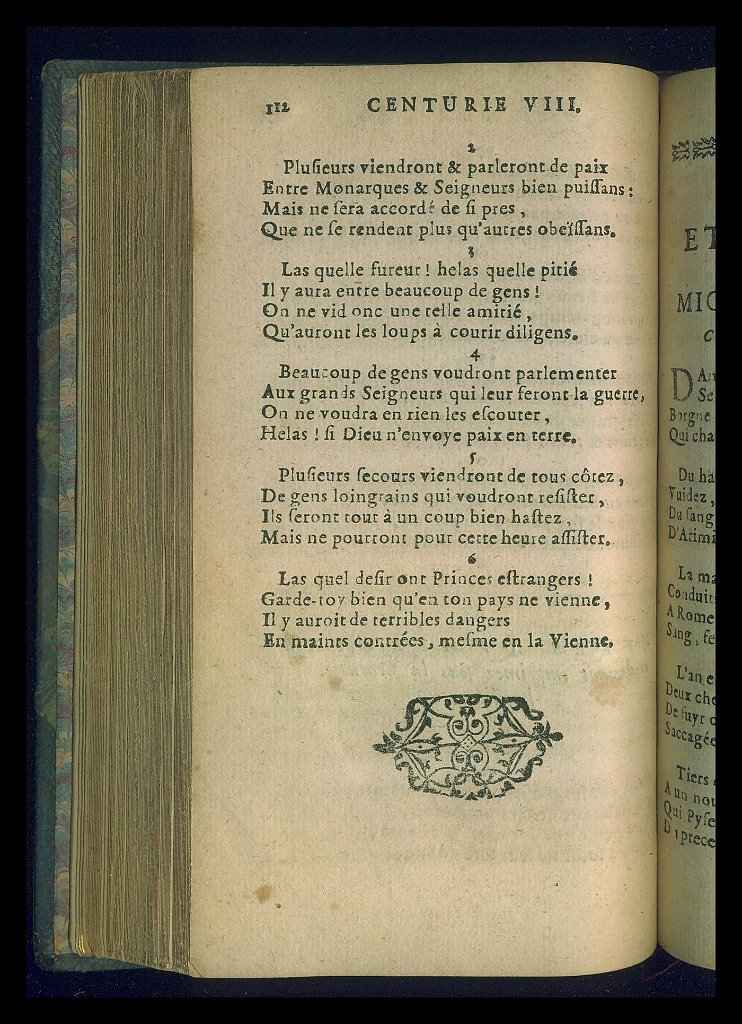 112 CENTURIE VIII.
2
Pluſieurs viendront & parleront de paix
Entre Monarques & Seigneurs bien puiſſans :
Mais ne ſera accordé de ſi pres ,
Que ne ſe rendent plus qu'autres obeïſſans.
3
Las quelle fureur ! helas quelle pitié
Il y aura entre beaucoup de gens !
On ne vid onc une telle amitié ,
Qu'auront les loups à courir diligens.
4
Beaucoup de gens voudront parlementer
Aux grands Seigneurs qui leur feront la guerre,
On ne voudra en rien les eſcouter ,
Helas ! ſi Dieu n'envoye paix en terre.
5
Pluſieurs ſecours viendront de tous côtez ,
De gens loingtains qui voudront reſiſter ,
Ils ſeront tout à un coup bien haſtez ,
Mais ne pourront pour cette heure aſſiſter.
6
Las quel deſir ont Princes eſtrangers !
Garde-toy bien qu'en ton pays ne vienne ,
Il y auroit de terribles dangers
En maints contrées , meſme en la Vienne.
ET
MIC
D
Se
Borgne
Qui cha
Du ha
Vuidez ,
Du ſang
D'Atimi
La ma
Conduit
A Rome
Sang , fe
L'an e
Deux che
De fuyr
Saccagée
Tiers
A un nou
Qui Pyſe